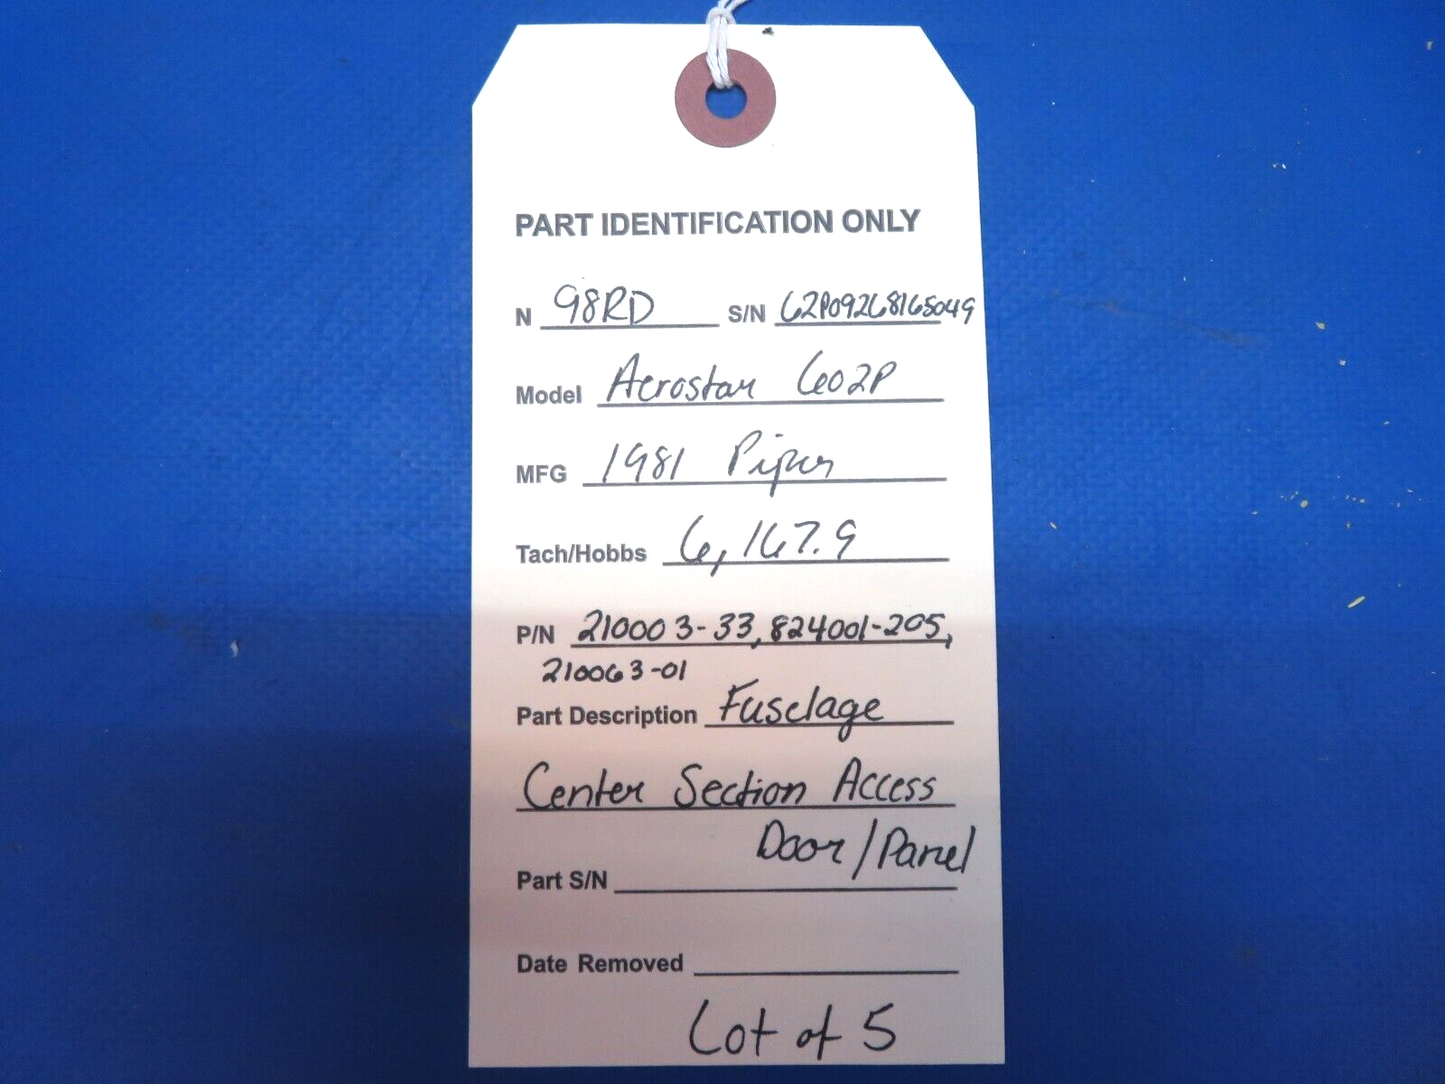 PART IDENTIFICATION ONLY
N 98RD S/N 62P09268165049
Model Aerostar 602P
MFG 1981 Piper
Tach/Hobbs 6,167.9
P/N 210003-33, 824001-205,
210063-01
Part Description Fuselage
Center Section Access
Door/Panel
Part S/N
Date Removed
Lot of 5